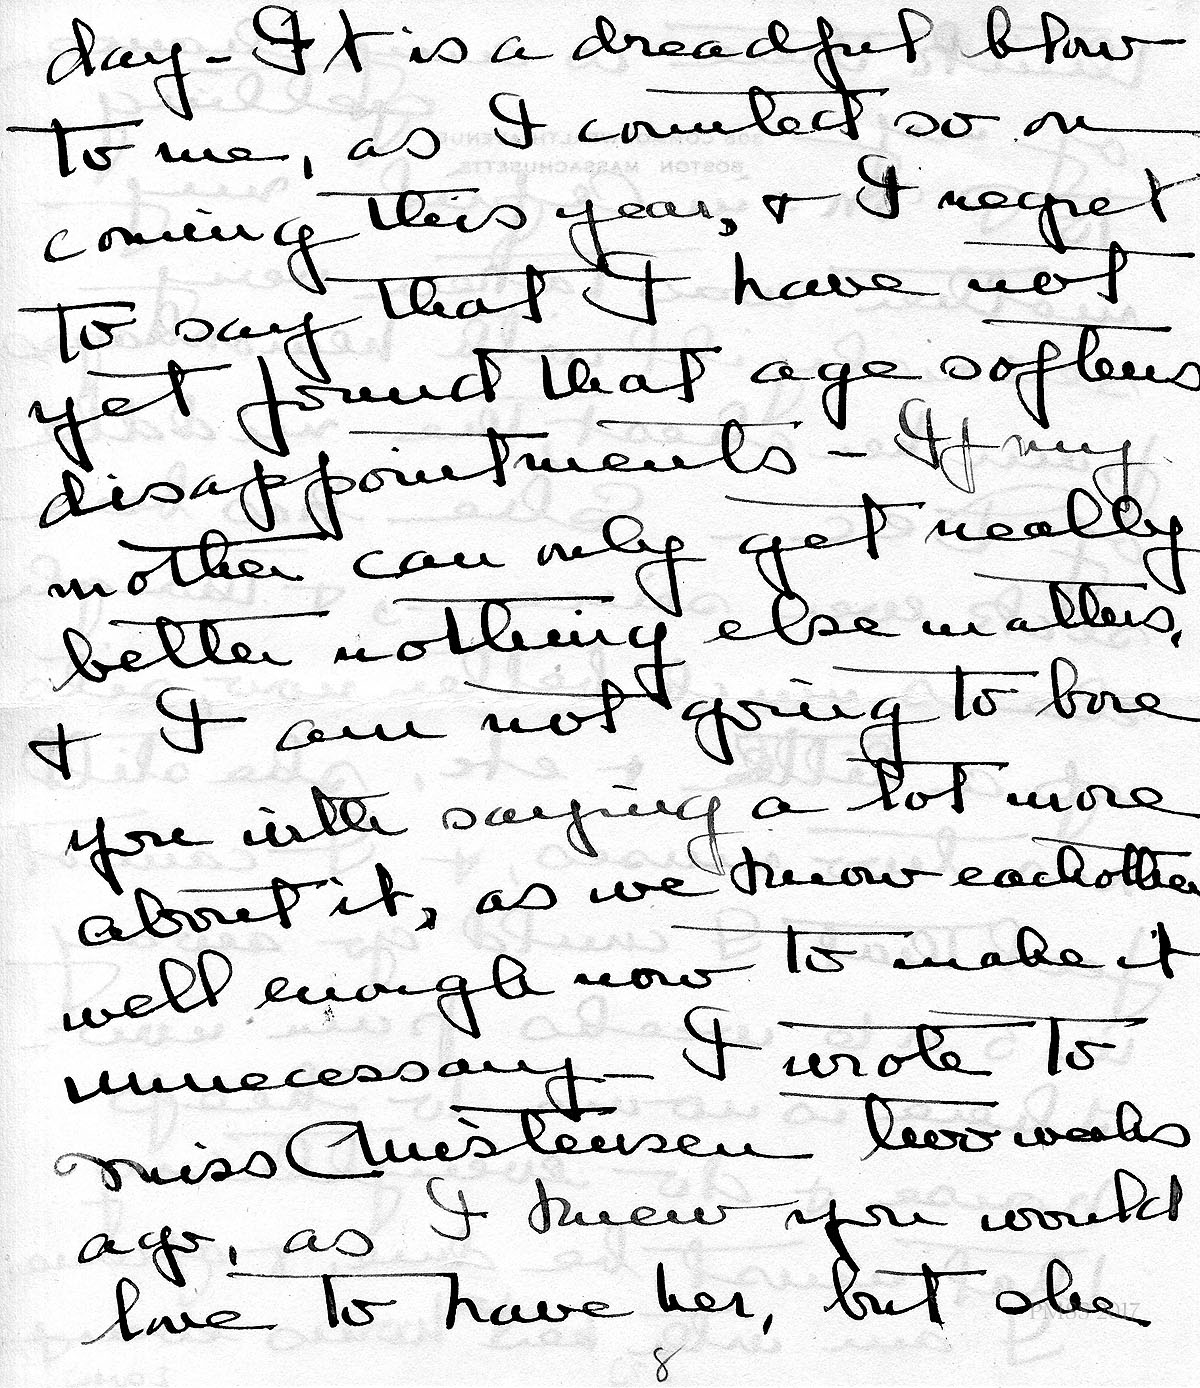 day - It is a dreadful blow
to me, as I counted so on
coming this year, & I regret
to say that I have not
yet found that age softens
disappointments - If my
mother can only get really
better nothing else matters,
& I am not going to bore
you with saying a lot more
about it, as we know eachother
well enough now to make it
unnecessary - I wrote to
Miss Christensen two weeks
ago, as I knew you would
love to have her, but she
8